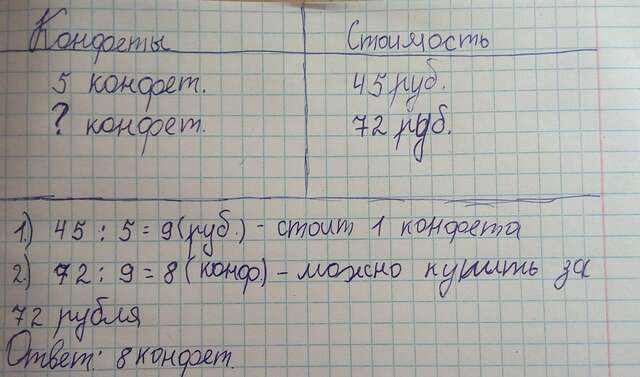 Конфеты Стоимость
5 конфет. 45 руб.
? конфет. 72 руб.
1.) 45 : 5 = 9 (руб.) - стоит 1 конфета
2.) 72 : 9 = 8 (конф) - можно купить за
72 рубля
Ответ: 8 конфет.